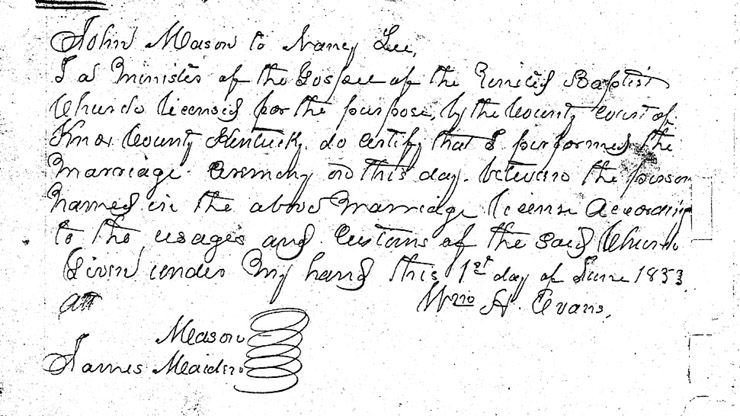 John Mason to Nancy Lee,
I a Minister of the Gospel of the United Baptist
Church licensed for the purpose, by the County Court of
Knox County Kentucky do certify that I performed the
Marriage Ceremony on this day between the person
named in the above Marriage license According
to the usages and Customs of the Said Church
Given under My hand this 1st day of June 1853
att
Wm H. Evans,
Mason
James